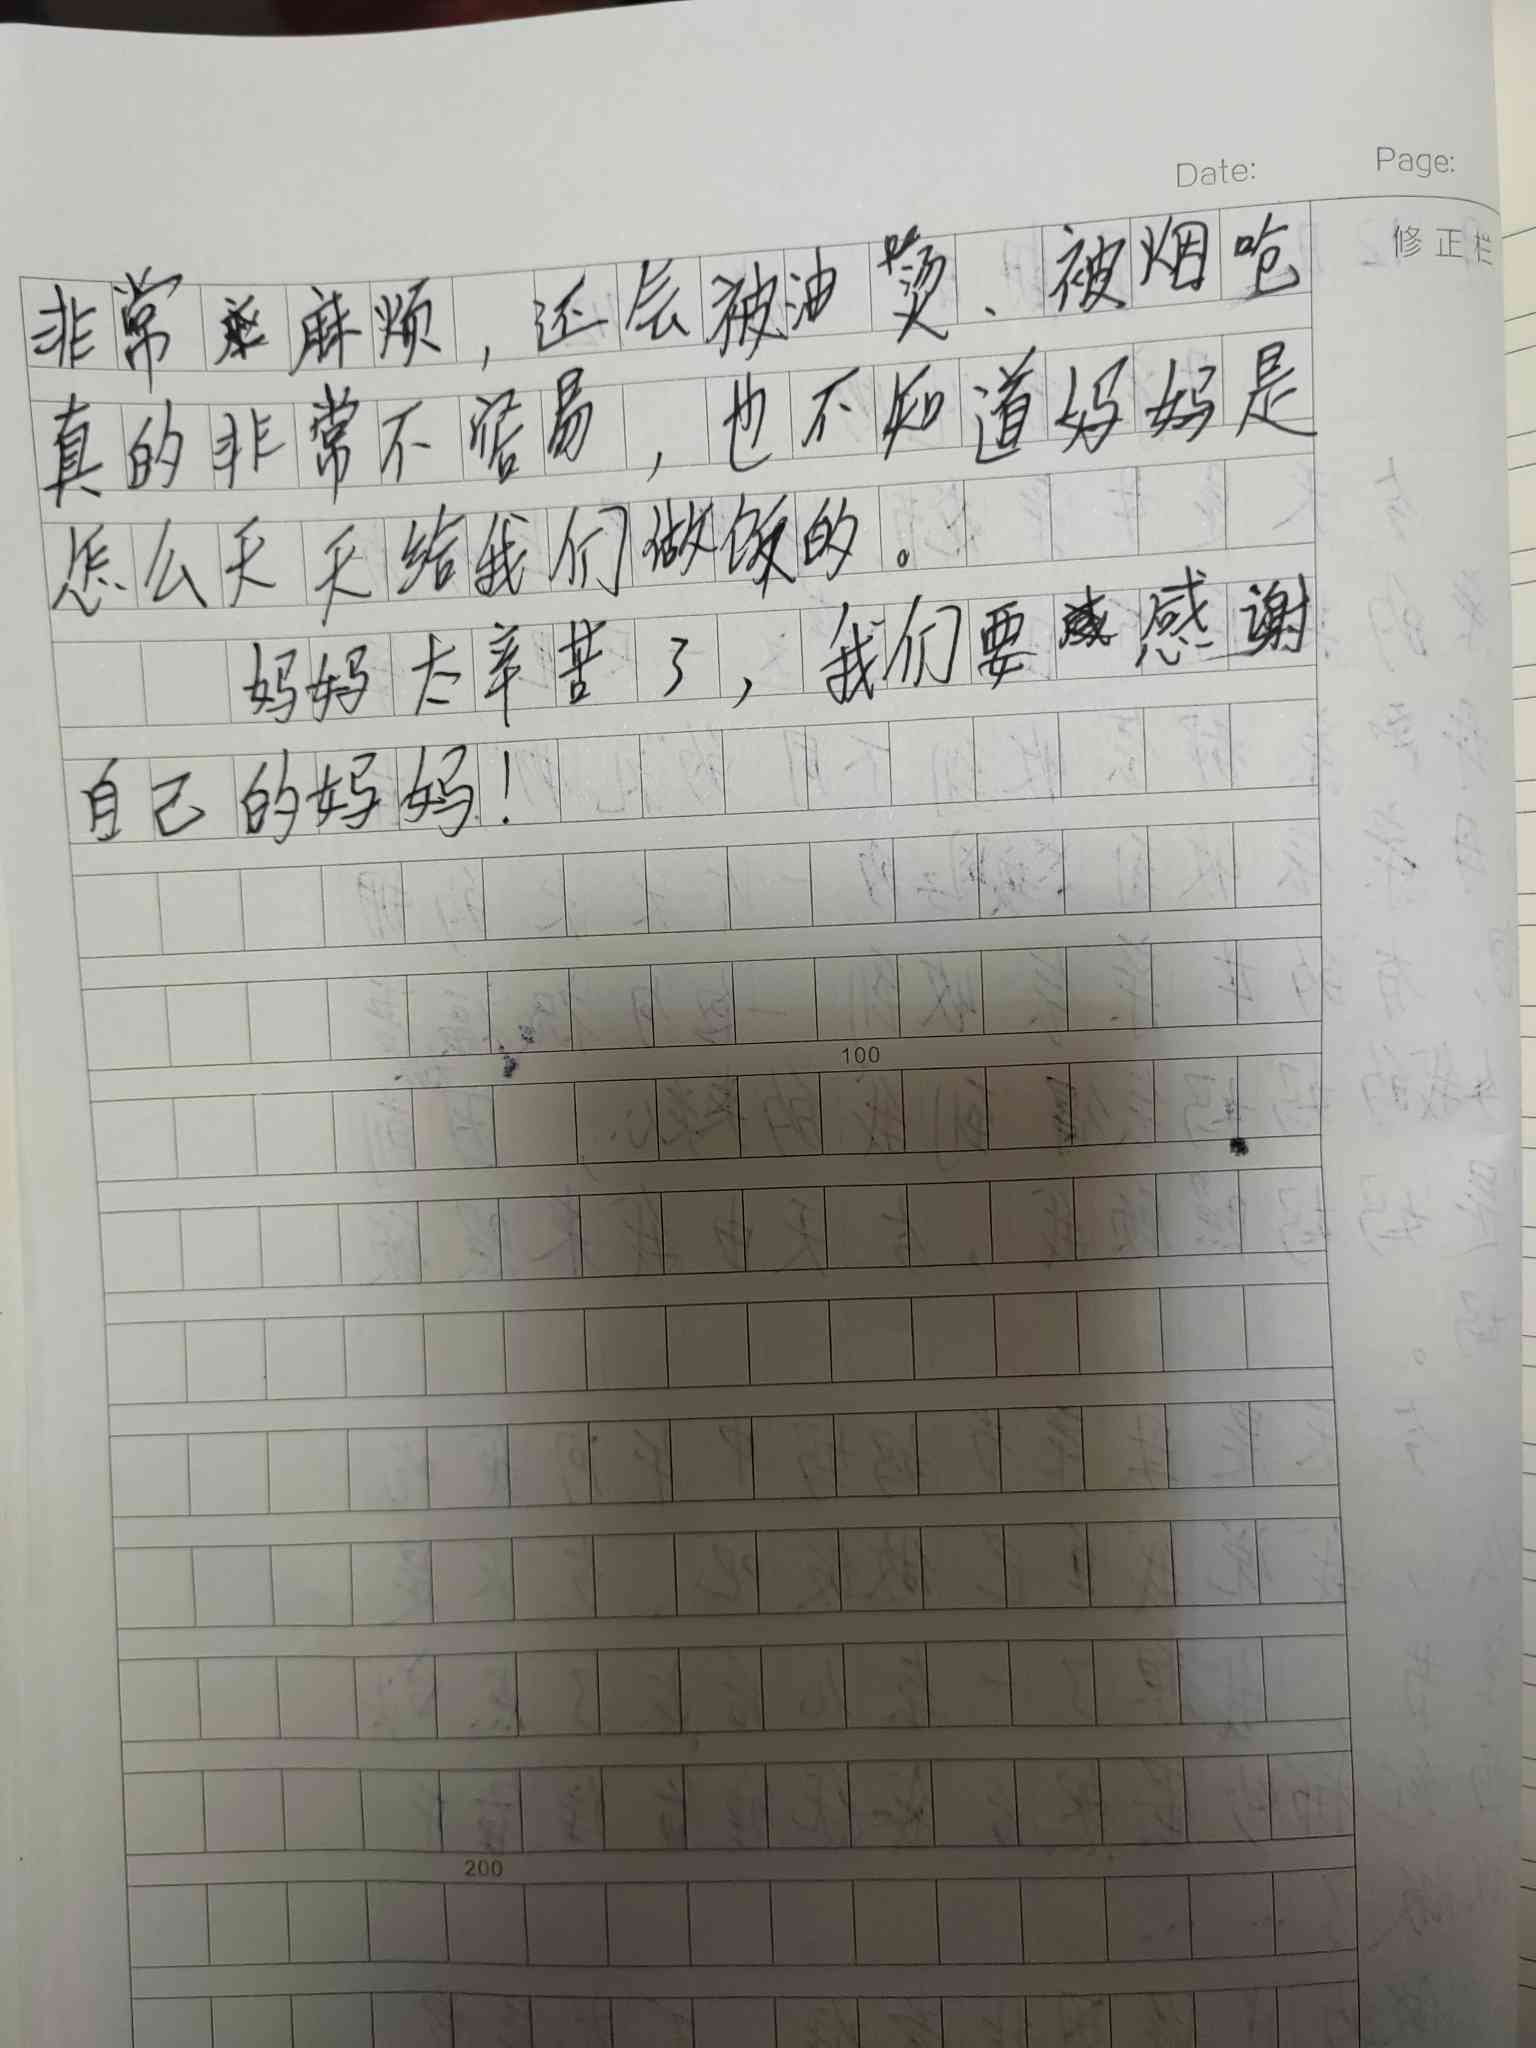 Date: Page:
修正栏
非常麻烦，还会被油烫、被烟呛
真的非常不容易，也不知道妈妈是
怎么天天给我们做饭的。
妈妈太辛苦了，我们要感谢
自己的妈妈！
100
200